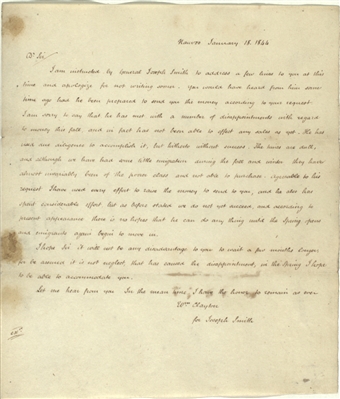 Nauvoo January 18. 1844
Dr Sir
I am instructed by General Joseph Smith to address a few lines to you at this
time and apologize for not writing sooner. You would have heard from him some
time ago had he been prepared to send you the money according to your request.
I am sorry to say that he has met with a number of disappointments with regard
to money this fall, and in fact has not been able to effect any sales as yet. He has
used due diligence to accomplish it, but hitherto without success. The times are dull,
and although we have had some little emigration during the fall and winter they have
almost invariably been of the poorer class and not able to purchase. Agreeable to his
request I have used every effort to raise the money to send to you, and he also has
used considerable effort but as before stated we do not yet succeed, and according to
present appearance there is no hopes that he can do any thing until the Spring opens
and emigrants again begin to move in.
I hope Sir it will not be any disadvantage to you to wait a few months longer,
for be assured it is not neglect, that has caused the disappointment, in the Spring I hope
to be able to accommodate you.
Let me hear from you In the mean time I have the honor to remain as ever
Wm Clayton
for Joseph Smith